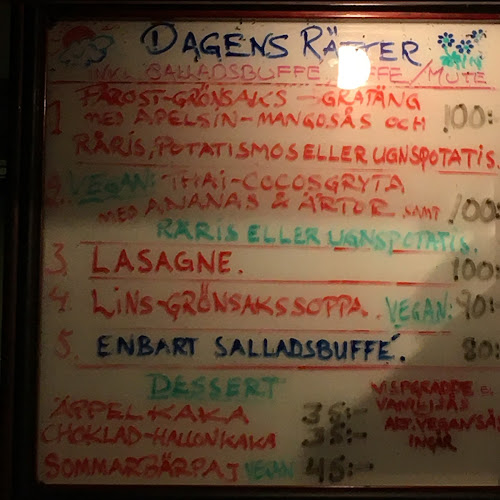 DAGENS RÄTTER
INKL SALLADSBUFFE /MUTE
1 FÄROST-GRÖNSAKS-GRATÄNG
MED APELSIN-MANGOSÅS OCH 100:
RÅRIS, POTATISMOS ELLER UGNSPOTATIS.
2. VEGAN: THAI-COCOSGRYTA
MED ANANAS & ÄRTOR SAMT 100:
RÅRIS ELLER UGNSPOTATIS.
3. LASAGNE. 100:
4. LINS-GRÖNSAKSSOPPA. VEGAN: 90:
5. ENBART SALLADSBUFFÉ. 80:
DESSERT
ÄPPELKAKA 35:-
CHOKLAD-HALLONKAKA 35:-
SOMMARBÄRPAJ VEGAN 45:-
VISPGRÄDDE
VANILJSÅS
ALT. VEGANSÅS
INGÅR